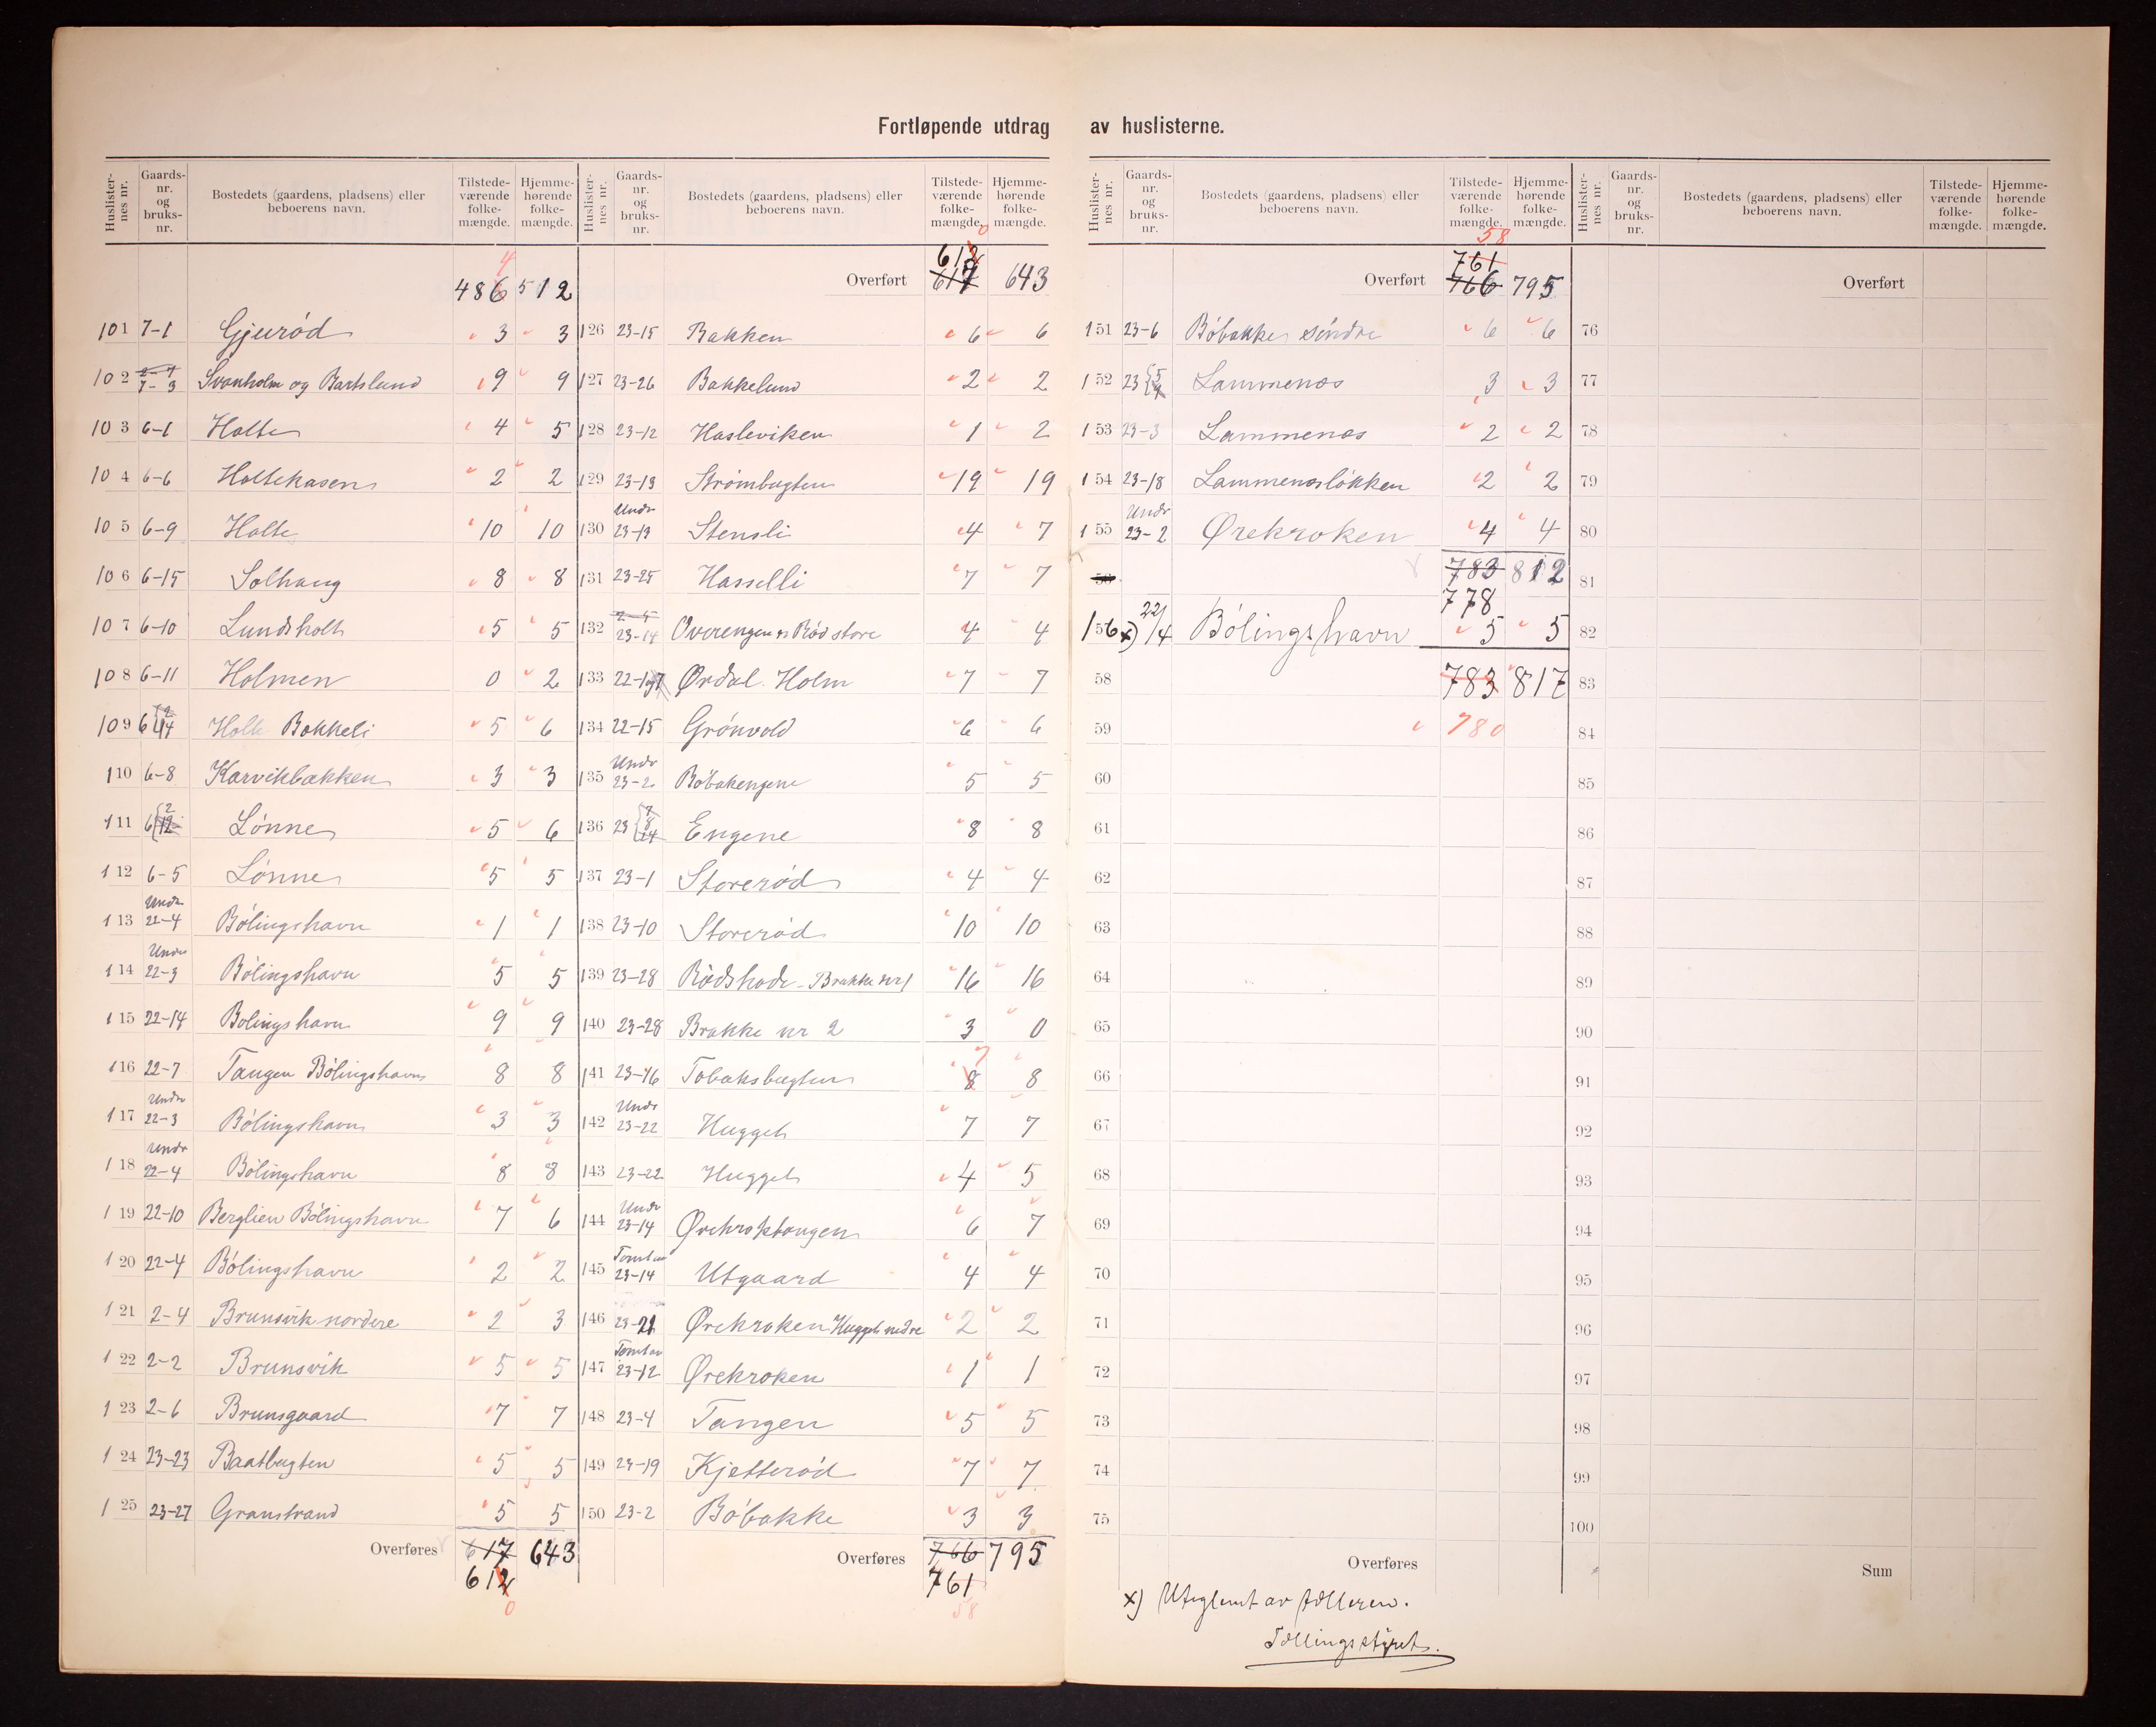 Fortløpende utdrag av huslisterne.
Huslister-nes nr. Gaards-nr. og bruks-nr. Bostedets (gaardens, pladsens) eller beboerens navn. Tilstede-værende folke-mængde. Hjemme-hørende folke-mængde.
4
486 512
101 7-1 Gjerød 3 3
102 7-3 Svanholm og Bartslund 9 9
103 6-1 Holte 4 5
104 6-6 Holtekasen 2 2
105 6-9 Holte 10 10
106 6-15 Solhaug 8 8
107 6-10 Lundsholt 5 5
108 6-11 Holmen 0 2
109 6 Holte Bakkeli 5 6
110 6-8 Karvikbakken 3 3
111 6 2 12 Lønne 5 6
112 6-5 Lønne 5 5
113 Undr 22-4 Bölingshavn 1 1
114 Undr 22-3 Bölingshavn 5 5
115 22-14 Bolingshavn 9 9
116 22-7 Tangen Bölingshavn 8 8
117 Undr 22-3 Bölingshavn 3 3
118 Undr 22-4 Bölingshavn 8 8
119 22-10 Berglien Bölingshavn 7 6
120 22-4 Bölingshavn 2 2
121 2-4 Brunsvik nordre 2 3
122 2-2 Brunsvik 5 5
123 2-6 Brunsgaard 7 7
124 23-23 Baatbugten 5 5
125 23-27 Granstrand 5 5
Overføres 617 643
612
0
Huslister-nes nr. Gaards-nr. og bruks-nr. Bostedets (gaardens, pladsens) eller beboerens navn. Tilstede-værende folke-mængde. Hjemme-hørende folke-mængde.
0
612
Overført 617 643
126 23-15 Bakken 6 6
127 23-26 Bakkelund 2 2
128 23-12 Hasleviken 1 2
129 23-13 Strömbugten 19 19
130 Undr 23-13 Stensli 4 7
131 23-25 Hasselli 7 7
132 23-14 Overengen Rød store 4 4
133 22-17 Ørdal Holm 7 7
134 22-15 Grönvold 6 6
135 Undr 23-2 Böbakengene 5 5
136 23 7 8 14 Engene 8 8
137 23-1 Storerød 4 4
138 23-10 Storerød 10 10
139 23-28 Rødshode - Brakke nr 1 16 16
140 23-28 Brakke nr 2 3 0
141 23-16 Tobaksbugten 8 7 8
142 Undr 23-22 Huggel 7 7
143 23-22 Huggel 4 5
144 Undr 23-14 Ørekroktangen 6 7
145 Tomt av 23-14 Utgaard 4 4
146 23-21 Ørekroken Huggel nedre 2 2
147 Tomt av 23-12 Ørekroken 1 1
148 23-4 Tangen 5 5
149 23-19 Kjetterød 7 7
150 23-2 Böbakke 3 3
Overføres 766 795
761
58
Huslister-nes nr. Gaards-nr. og bruks-nr. Bostedets (gaardens, pladsens) eller beboerens navn. Tilstede-værende folke-mængde. Hjemme-hørende folke-mængde.
58
761
Overført 766 795
151 23-6 Böbakke söndre 6 6
152 23 Lammenes 3 3
153 23-3 Lammenes 2 2
154 23-18 Lammenesløkken 2 2
155 Undr 23-2 Ørekroken 4 4
56 783 812
778
156 x) 22/14 Bölingshavn 5 5
58 783 817
59 780
60
61
62
63
64
65
66
67
68
69
70
71
72
73
74
75
Overføres
x) Uteglemt av tælleren.
Tællingsstyret.
Huslister-nes nr. Gaards-nr. og bruks-nr. Bostedets (gaardens, pladsens) eller beboerens navn. Tilstede-værende folke-mængde. Hjemme-hørende folke-mængde.
Overført
76
77
78
79
80
81
82
83
84
85
86
87
88
89
90
91
92
93
94
95
96
97
98
99
100
Sum